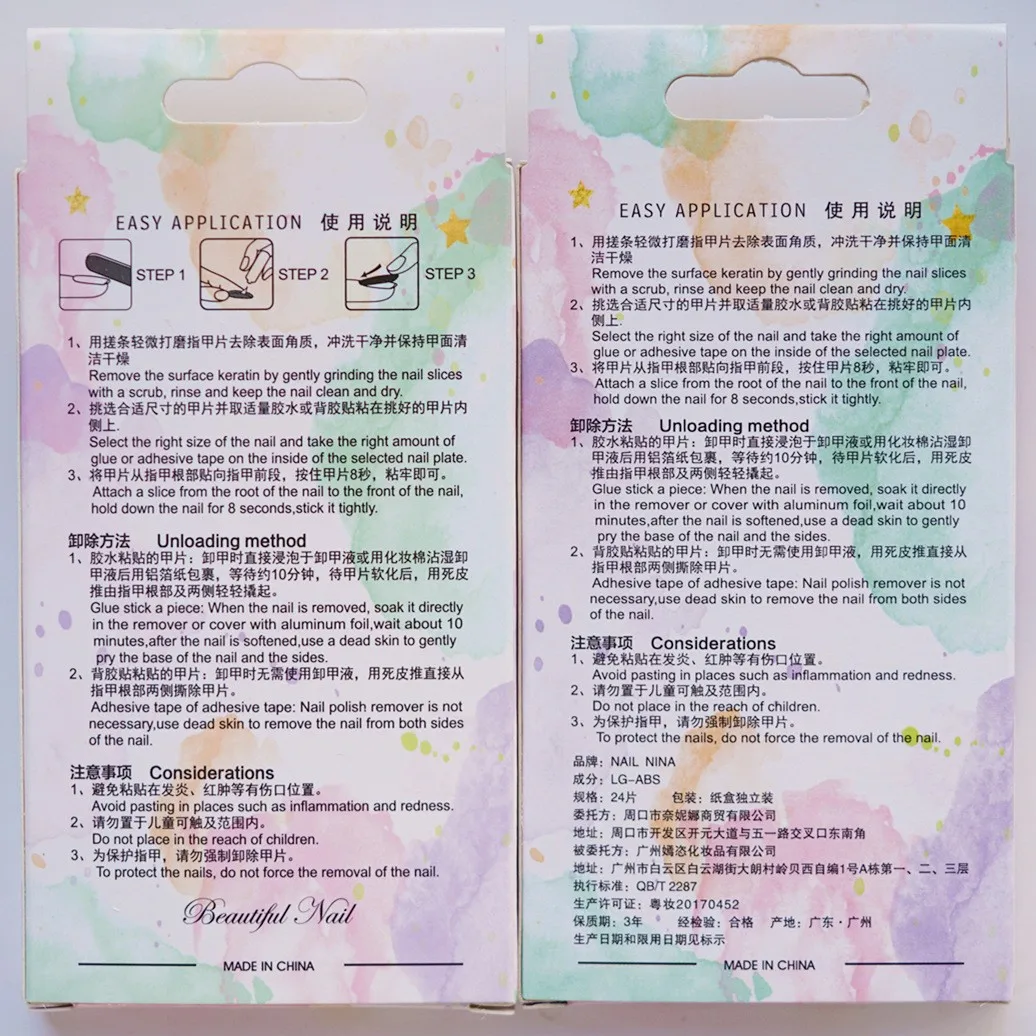 EASY APPLICATION 使用说明
STEP 1 STEP 2 STEP 3
1、用搓条轻微打磨指甲片去除表面角质，冲洗干净并保持甲面清
洁干燥
Remove the surface keratin by gently grinding the nail slices
with a scrub, rinse and keep the nail clean and dry.
2、挑选合适尺寸的甲片并取适量胶水或背胶贴粘在挑好的甲片内
侧上.
Select the right size of the nail and take the right amount of
glue or adhesive tape on the inside of the selected nail plate.
3、将甲片从指甲根部贴向指甲前段，按住甲片8秒，粘牢即可。
Attach a slice from the root of the nail to the front of the nail,
hold down the nail for 8 seconds,stick it tightly.
卸除方法 Unloading method
1、胶水粘贴的甲片：卸甲时直接浸泡于卸甲液或用化妆棉沾湿卸
甲液后用铝箔纸包裹，等待约10分钟，待甲片软化后，用死皮
推由指甲根部及两侧轻轻撬起。
Glue stick a piece: When the nail is removed, soak it directly
in the remover or cover with aluminum foil,wait about 10
minutes,after the nail is softened,use a dead skin to gently
pry the base of the nail and the sides.
2、背胶贴粘贴的甲片：卸甲时无需使用卸甲液，用死皮推直接从
指甲根部两侧撕除甲片。
Adhesive tape of adhesive tape: Nail polish remover is not
necessary,use dead skin to remove the nail from both sides
of the nail.
注意事项 Considerations
1、避免粘贴在发炎、红肿等有伤口位置。
Avoid pasting in places such as inflammation and redness.
2、请勿置于儿童可触及范围内。
Do not place in the reach of children.
3、为保护指甲，请勿强制卸除甲片。
To protect the nails, do not force the removal of the nail.
Beautiful Nail
MADE IN CHINA
EASY APPLICATION 使用说明
1、用搓条轻微打磨指甲片去除表面角质，冲洗干净并保持甲面清
洁干燥
Remove the surface keratin by gently grinding the nail slices
with a scrub, rinse and keep the nail clean and dry.
2、挑选合适尺寸的甲片并取适量胶水或背胶贴粘在挑好的甲片内
侧上.
Select the right size of the nail and take the right amount of
glue or adhesive tape on the inside of the selected nail plate.
3、将甲片从指甲根部贴向指甲前段，按住甲片8秒，粘牢即可。
Attach a slice from the root of the nail to the front of the nail,
hold down the nail for 8 seconds,stick it tightly.
卸除方法 Unloading method
1、胶水粘贴的甲片：卸甲时直接浸泡于卸甲液或用化妆棉沾湿卸
甲液后用铝箔纸包裹，等待约10分钟，待甲片软化后，用死皮
推由指甲根部及两侧轻轻撬起。
Glue stick a piece: When the nail is removed, soak it directly
in the remover or cover with aluminum foil,wait about 10
minutes,after the nail is softened,use a dead skin to gently
pry the base of the nail and the sides.
2、背胶贴粘贴的甲片：卸甲时无需使用卸甲液，用死皮推直接从
指甲根部两侧撕除甲片。
Adhesive tape of adhesive tape: Nail polish remover is not
necessary,use dead skin to remove the nail from both sides
of the nail.
注意事项 Considerations
1、避免粘贴在发炎、红肿等有伤口位置。
Avoid pasting in places such as inflammation and redness.
2、请勿置于儿童可触及范围内。
Do not place in the reach of children.
3、为保护指甲，请勿强制卸除甲片。
To protect the nails, do not force the removal of the nail.
品牌：NAIL NINA
成分：LG-ABS
规格：24片 包装：纸盒独立装
委托方：周口市奈妮娜商贸有限公司
地址：周口市开发区开元大道与五一路交叉口东南角
被委托方：广州嫣恣化妆品有限公司
地址：广州市白云区白云湖街大朗村岭贝西自编1号A栋第一、二、三层
执行标准：QB/T 2287
生产许可证：粤妆20170452
保质期：3年 经检验：合格 产地：广东·广州
生产日期和限用日期见标示
MADE IN CHINA